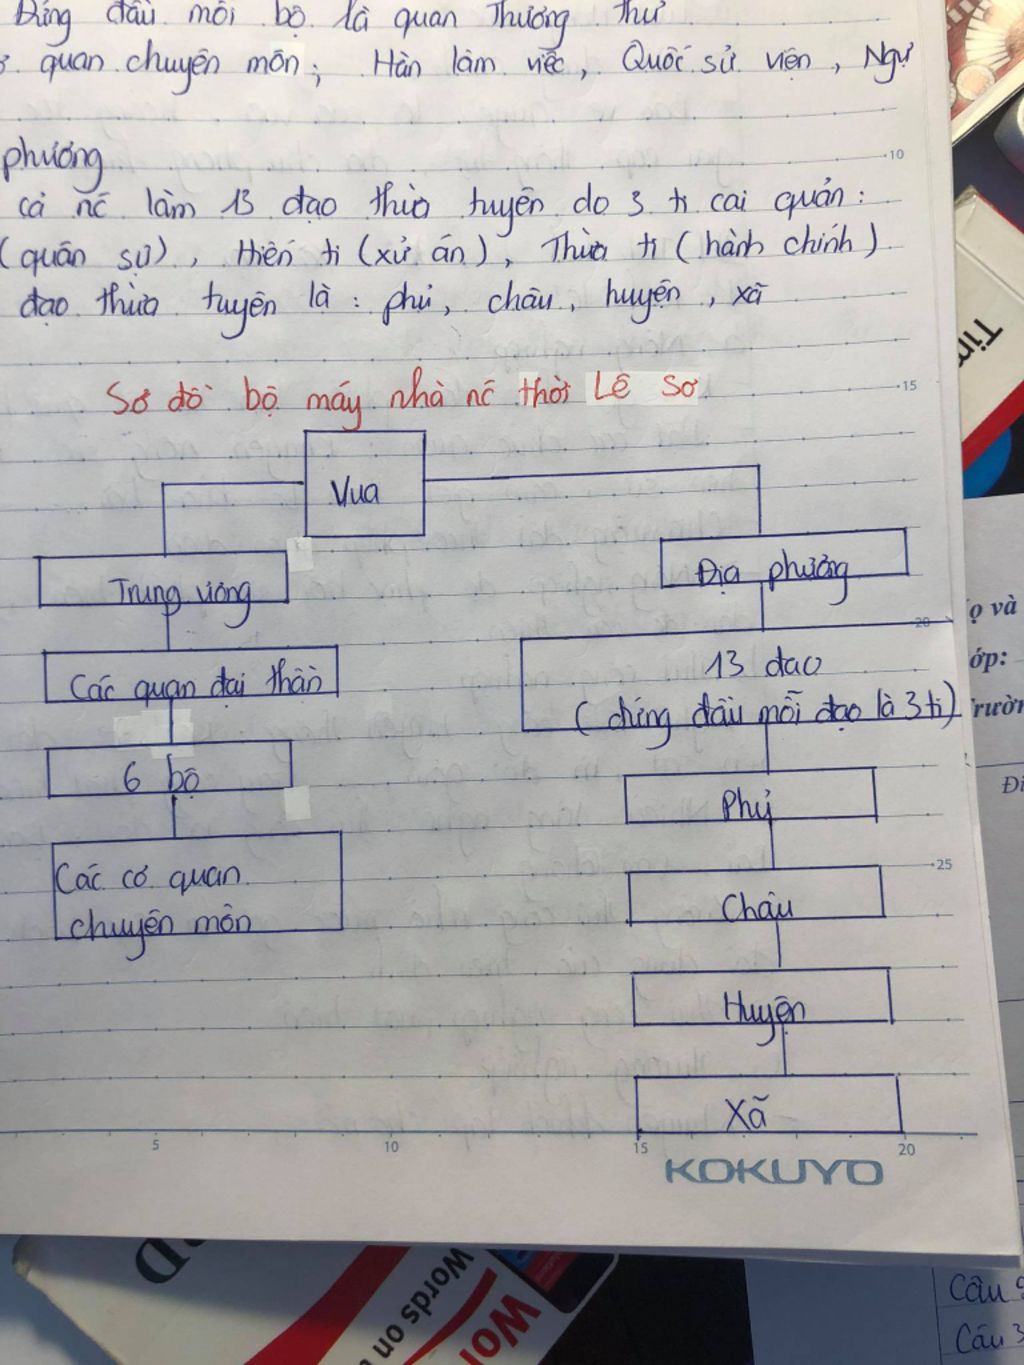 Đứng đầu mỗi bộ là quan Thượng thư
quan chuyên môn; Hàn lâm việc, Quốc sử viện, Ngự
phương
10
cả nc làm 13 đạo thừa tuyên do 3 ti cai quản:
(quân sự), Hiến ti (xử án), Thừa ti (hành chính)
đạo thừa tuyên là: phủ, châu, huyện, xã
Sơ đồ bộ máy nhà nc thời Lê Sơ
15
Vua
Trung ương
Địa phương
Các quan đại thần
20
13 đạo
(chứng đầu mỗi đạo là 3 ti)
6 bộ
Phủ
Các cơ quan
chuyên môn
25
Châu
Huyện
Xã
5 10 15 20
KOKUYO
ọ và
ớp:
rườn
Words on
Câu
Câu 3